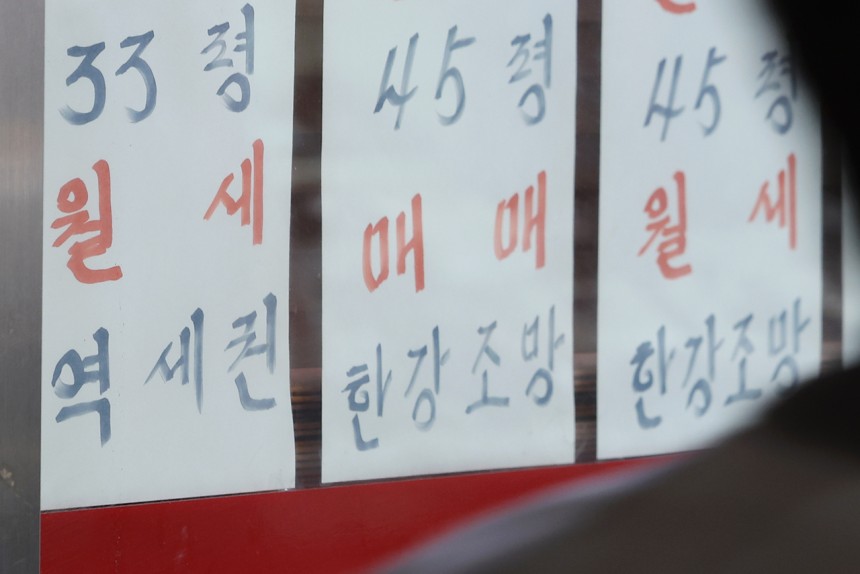 33 령
월 세
역 세 권
45 령
매 매
한강 조망
45 령
월 세
한강조망